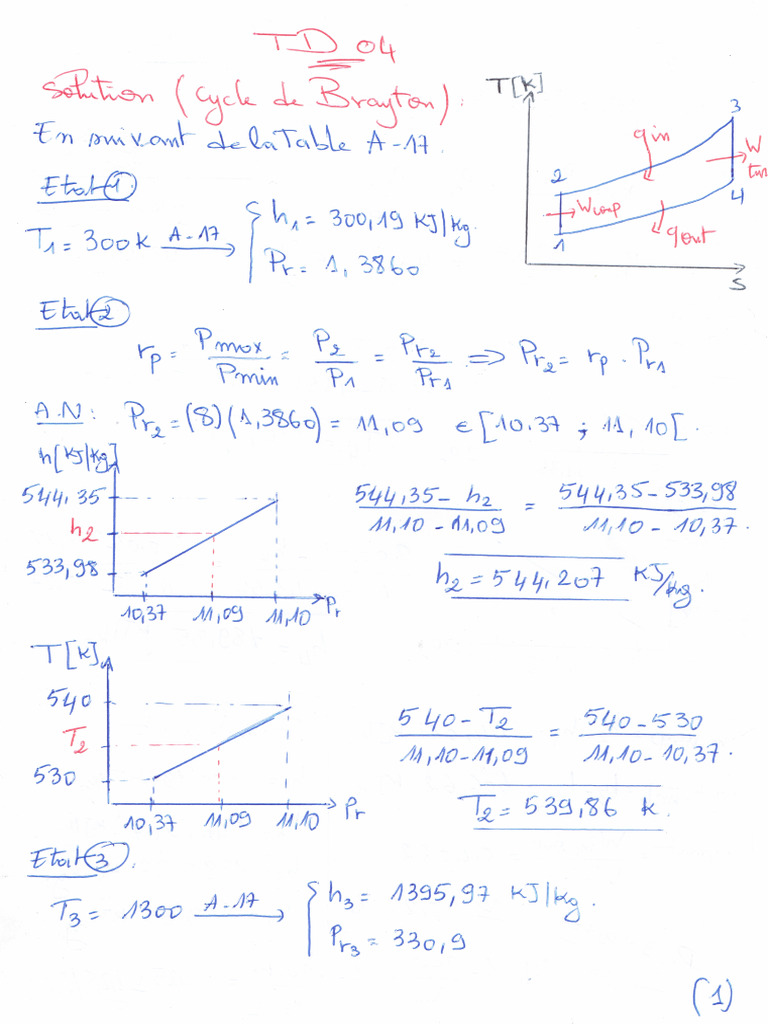 TD 04
Solution (Cycle de Brayton):
En suivant de la Table A-17.
T[K]
3
qin
W
tur
2
4
Wcomp
1
qout
S
Etat 1
T1 = 300K A-17 → { h1 = 300,19 KJ/kg.
Pr = 1,3860
Etat 2
rp = Pmax/Pmin = P2/P1 = Pr2/Pr1 ⇒ Pr2 = rp . Pr1
A.N: Pr2 = (8)(1,3860) = 11,09 ∈ [10.37 ; 11,10[.
h[KJ/kg]
544,35
h2
533,98
10,37 11,09 11,10 Pr
544,35 - h2 / 11,10 - 11,09 = 544,35 - 533,98 / 11,10 - 10,37.
h2 = 544,207 KJ/kg.
T[K]
540
T2
530
10,37 11,09 11,10 Pr
540 - T2 / 11,10 - 11,09 = 540 - 530 / 11,10 - 10,37.
T2 = 539,86 K.
Etat 3.
T3 = 1300 A-17 → { h3 = 1395,97 KJ/kg.
Pr3 = 330,9
(1)